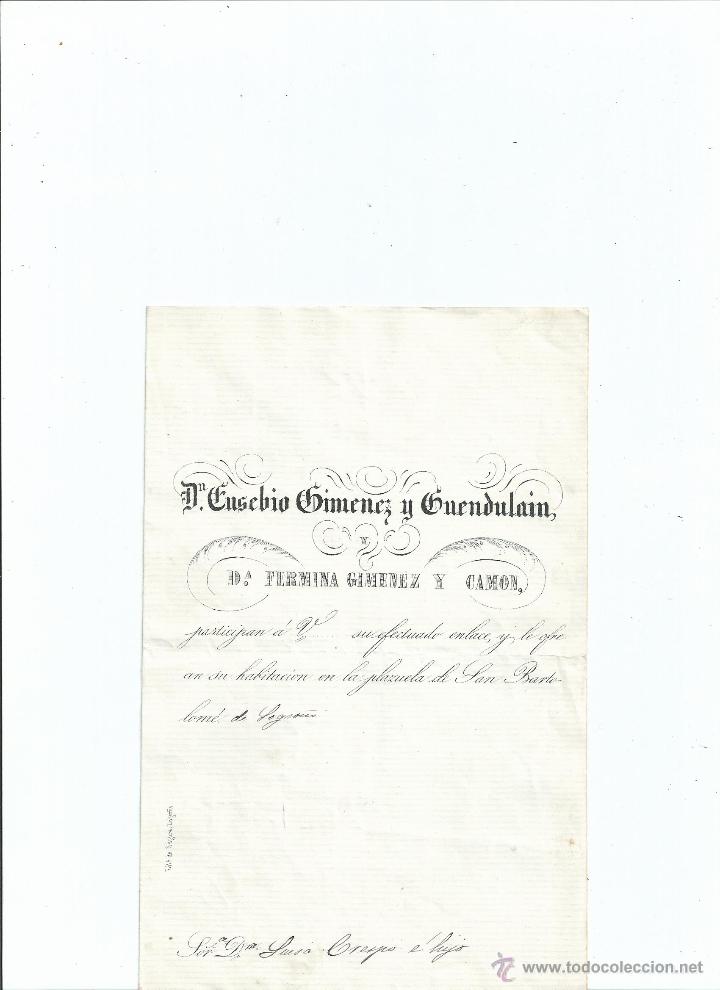 Dn. Eusebio Gimenez y Guendulain,
Y
D.A FERMINA GIMENEZ Y CAMON,
participan á V. su efectuado enlace, y le ofre
an su habitacion en la plazuela de San Barto-
lomé de Logroño
Lit. de
Sra. Dña. Luisa Crespo é hijo
www.todocoleccion.net